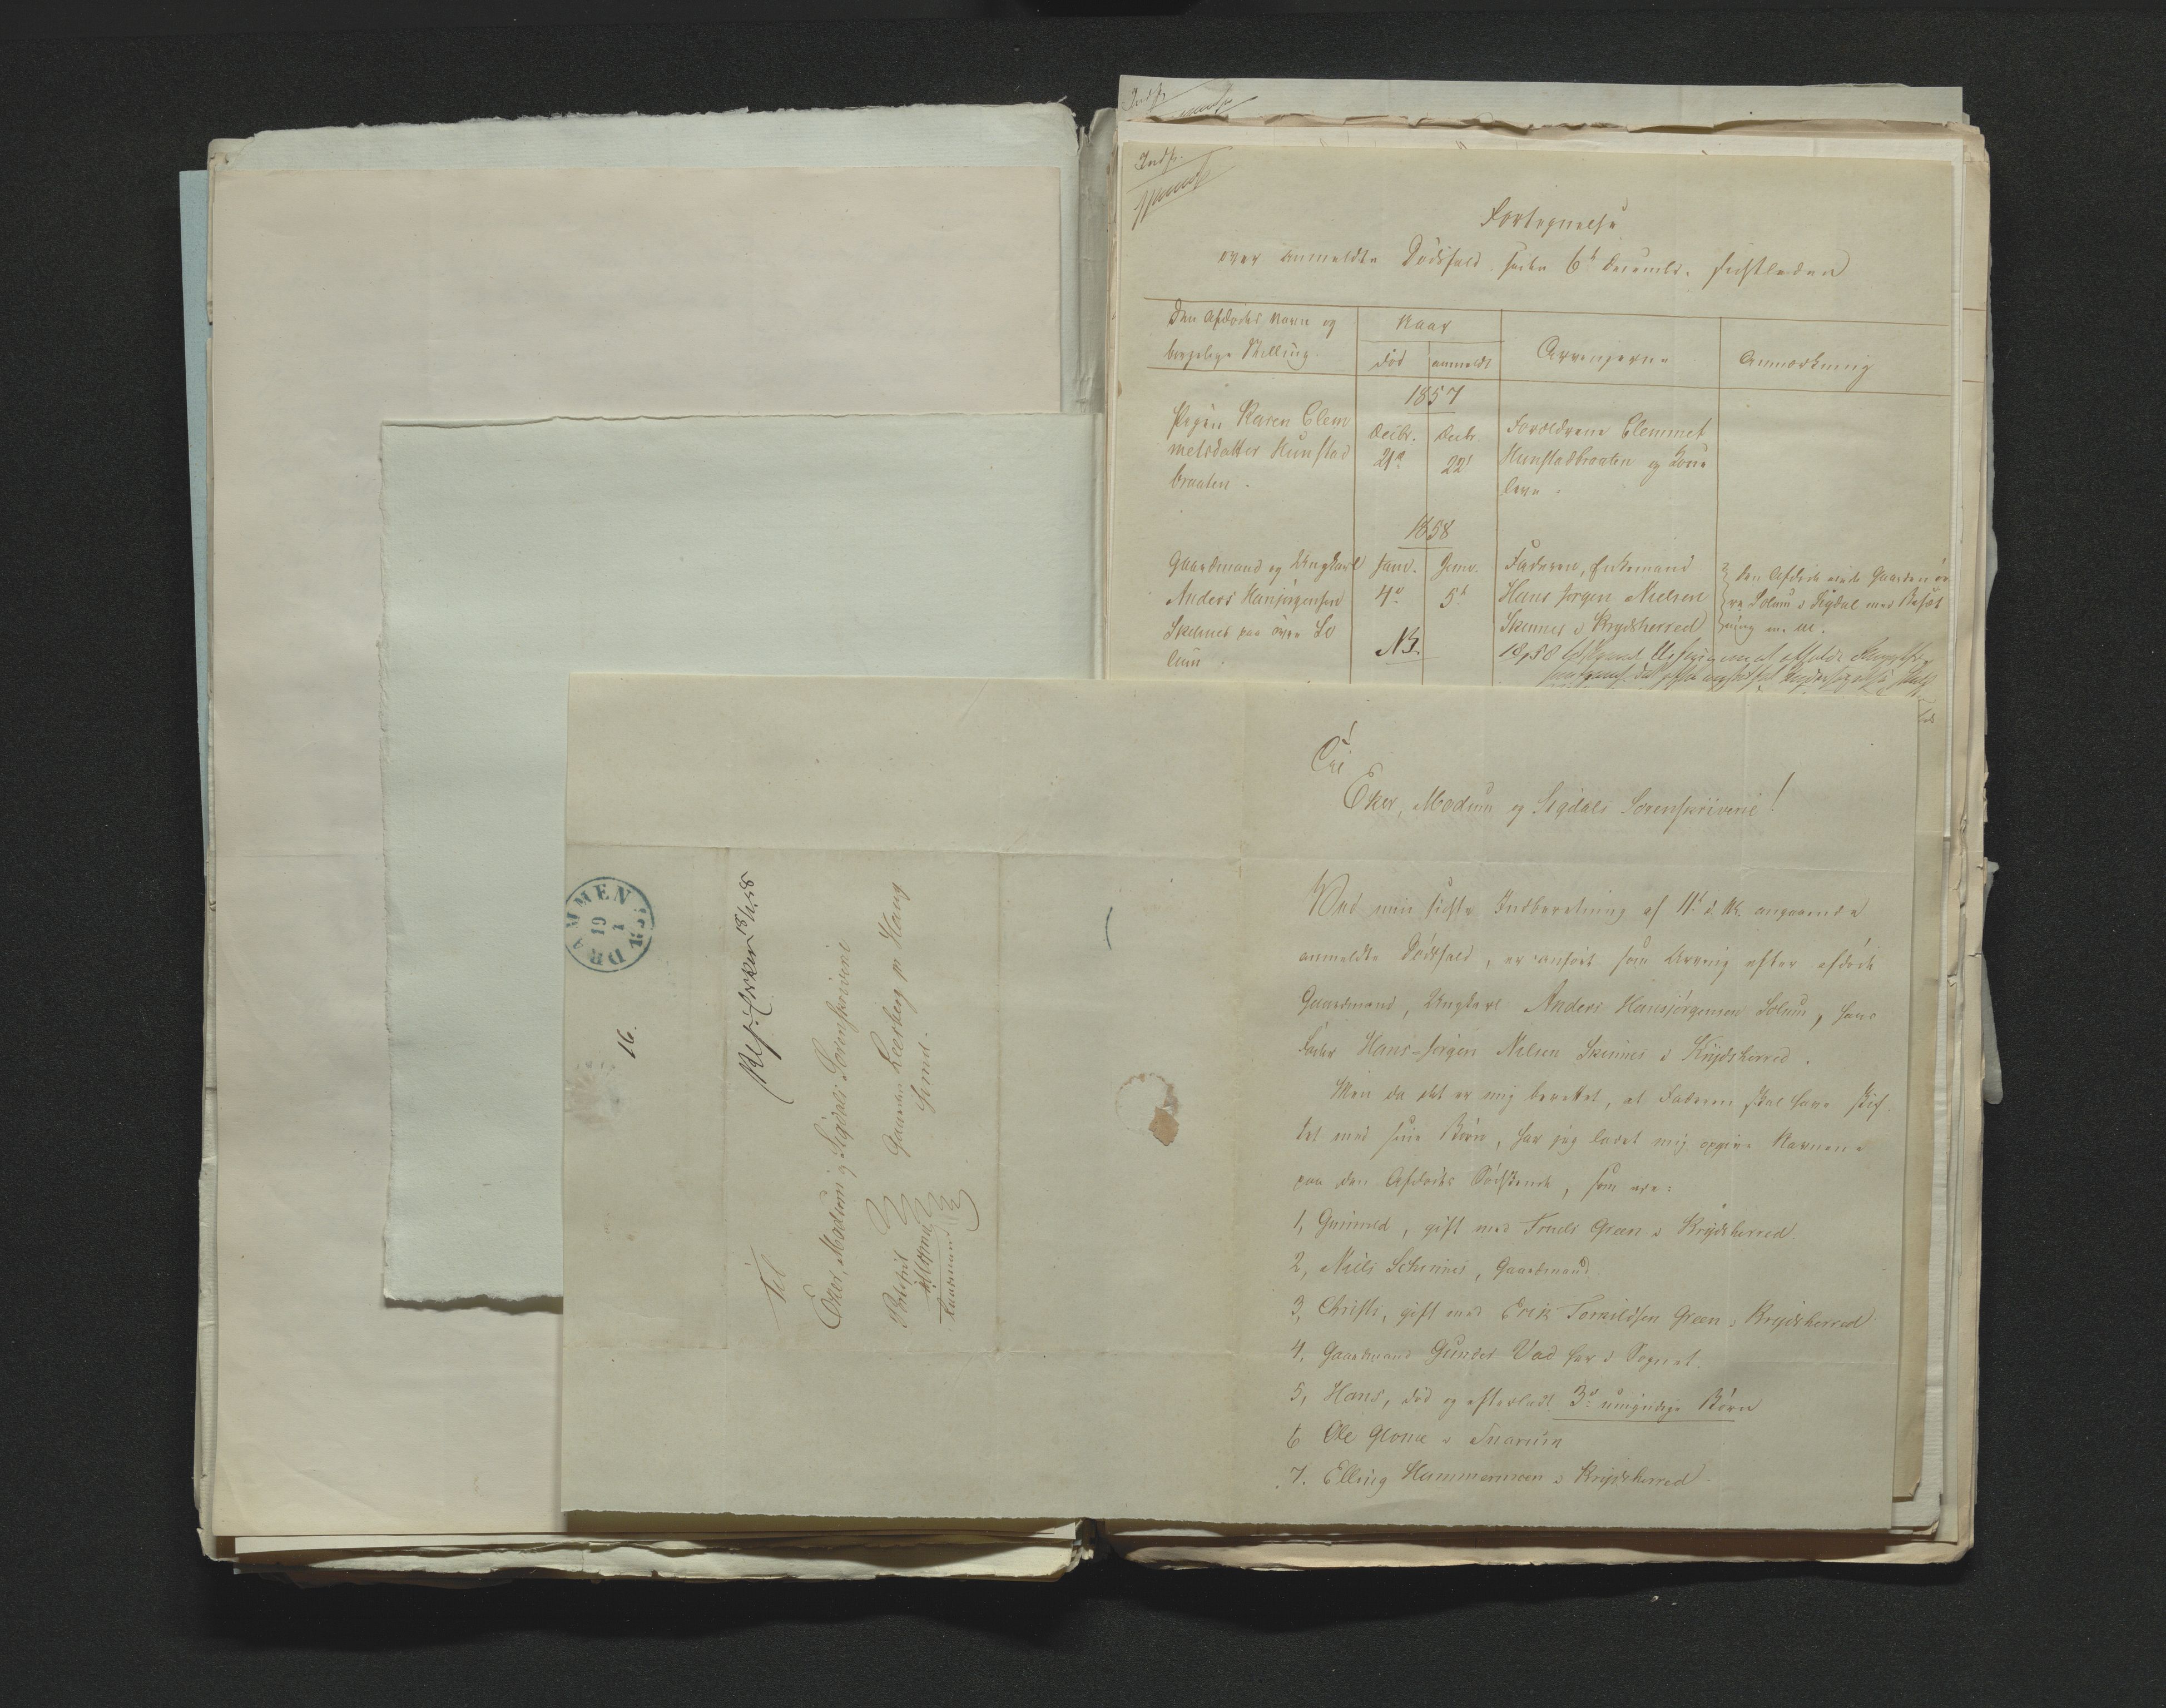 Indf.
Indf.
Fortegnelse
over anmeldte Dödsfald siden 6t Decembr. sidstleden
Den Afdödes Navn og
borgelige Stilling
Naar
död
anmeldt
Arvingerne
Anmærkning
1857
Pigen Karen Clem
metsdatter Kunstad
braaten.
Decbr.
21d
Decbr.
22d
Forældrene Clemmet
Kunstadbraaten og Kone
leve.
1858
Gaardmand og Ungkarl
Anders Hansjörgensen
Skinnes paa övre So
lum
Janv.
4d
Janv.
5t
NB.
Faderen, Enkemand
Hans Jörgen Nielsen
Skinnes i Krydsherred
Den Afdöde eiede Gaarden öv
re Solum i Sigdal med Besæt
ning m. m.
Til
Eker, Modum og Sigdals Sorenskriverie!
Ved min sidste Indberetning af 11t d. M. angaaende
anmeldte Dödsfald, er anfört som Arving efter afdöde
Gaardmand, Ungkarl Anders Hansjörgensen Solum, hans
Fader Hans-Jörgen Nilsen Skinnes i Krydsherred.
Men da det er mig berettet, at Faderen skal have skif-
tet med sine Börn, har jeg ladet mig opgive Navnene
paa den Afdödes Södskende, som ere:
1, Gunnild, gift med Truels Green i Krydsherred
2, Niels Schinnes, Gaardmand
3, Christi, gift med Erik Tomildsen Green i Krydsherred
4, Gaardmand Gunder Vad her i Sognet.
5, Hans, död og efterladt 3d umyndige Börn
6 Ole Glomæ i Snarum
7. Elling Hammermoen i Krydsherred
DRAMMEN
19
1
16.
18/1 58
Til
Eker, Modum og Sigdals Sorenskriverie
Gaarden Leerberg pr Haug
Lensmand